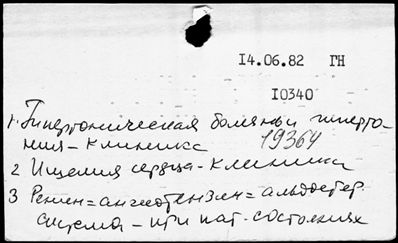 14.06.82 ГН
10340
1. Гипертоническая болезнь и гиперто-
ния - клиника
19364
2 Ишемия сердца - клиника
3 Ренин = ангиотензин = альдостер.
система - при пат. состояниях